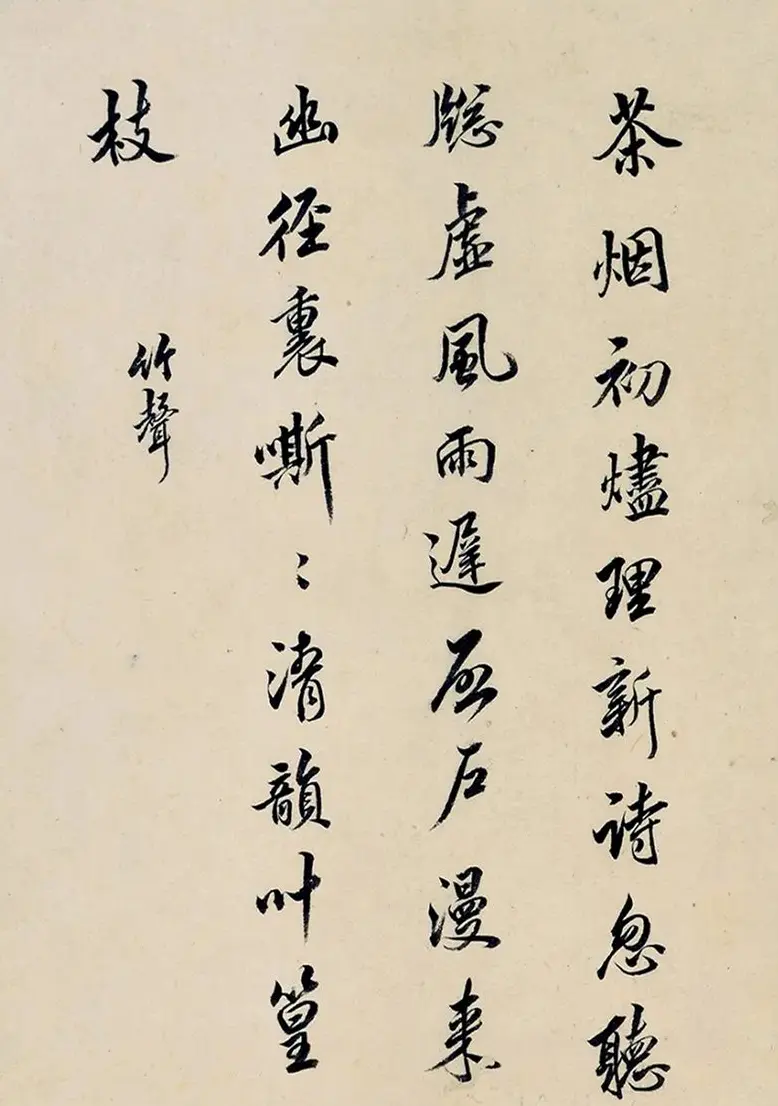 茶烟初燼理新诗忽聽
牕虚風雨遲石漫来
幽徑裏嘶〻清韻叶篁
枝
竹聲